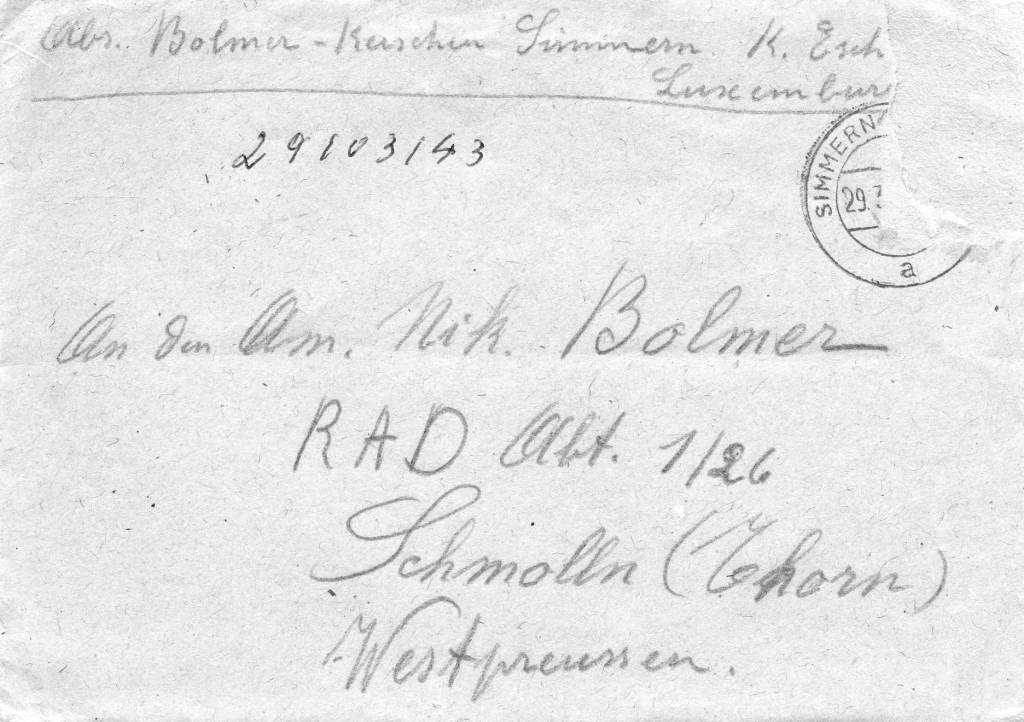 Abs. Bolmer-Kerschen Simmern. K. Esch
Luxembur
29103143
SIMMERN
29.
a
An den Am. Nik. Bolmer
RAD Abt. 1/26
Schmolln (Thorn)
Westpreussen.